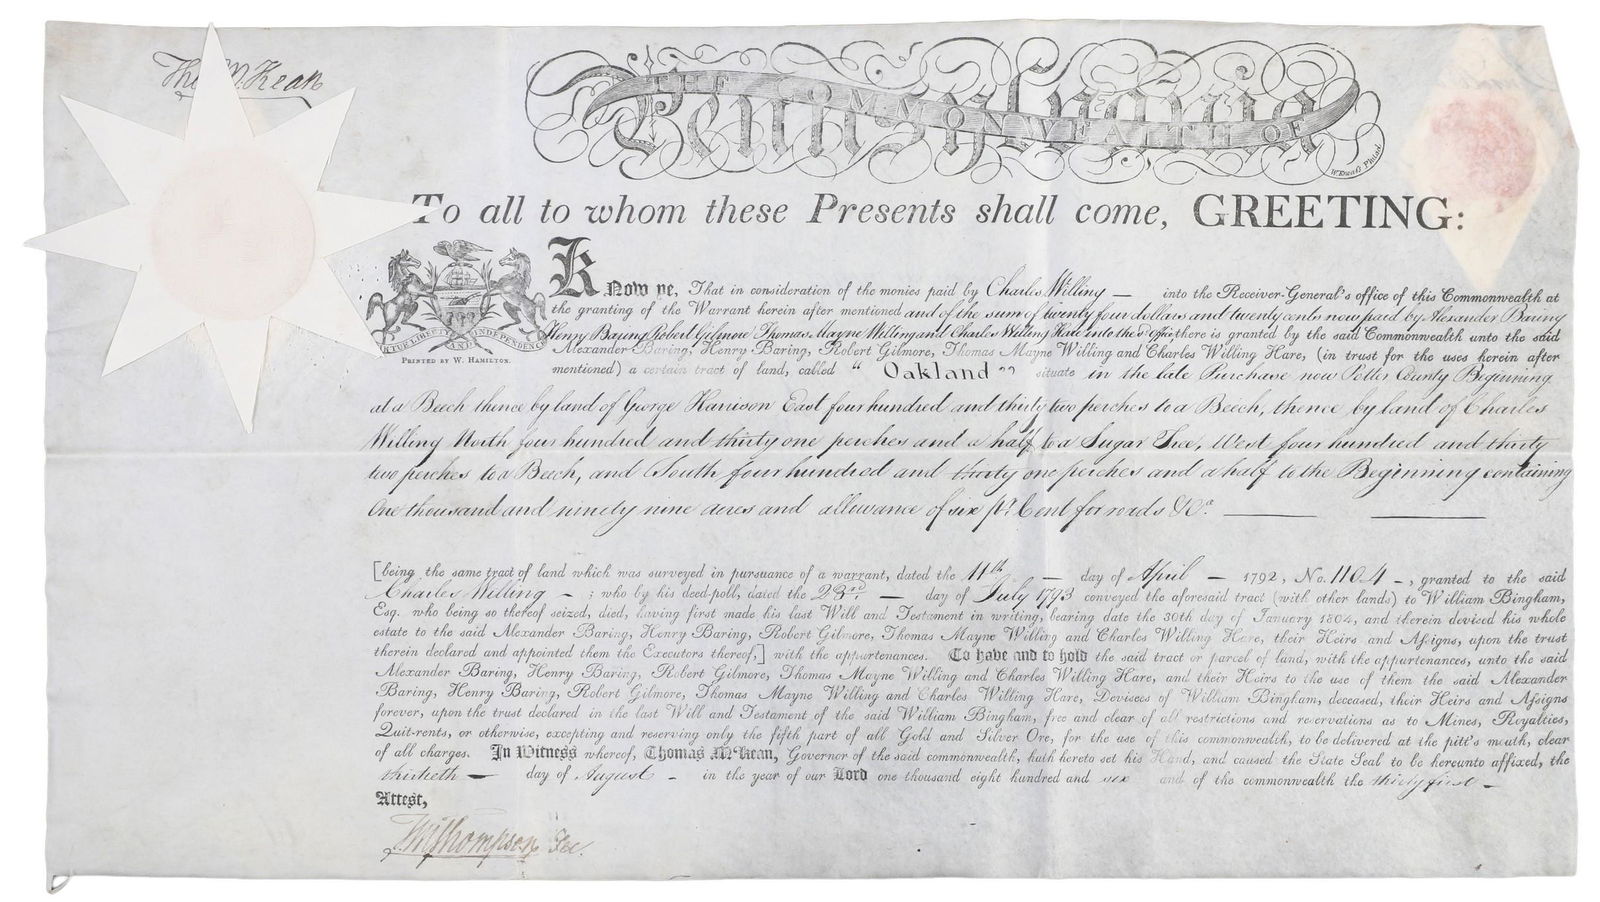 Tho M:Kean
THE COMMONWEALTH OF
Pennsylvania
W. Kneass Philad.
To all to whom these Presents shall come, GREETING:
Know ye, That in consideration of the monies paid by Charles Willing — into the Receiver-General's office of this Commonwealth at
the granting of the Warrant herein after mentioned and of the sum of twenty four dollars and twenty cents now paid by Alexander Baring
Henry Baring Robert Gilmore Thomas Mayne Willing and Charles Willing Hare into the sd Office, there is granted by the said Commonwealth unto the said
Alexander Baring, Henry Baring, Robert Gilmore, Thomas Mayne Willing and Charles Willing Hare, (in trust for the uses herein after
mentioned) a certain tract of land, called "Oakland" situate in the late Purchase now Potter County Beginning
VIRTUE LIBERTY AND INDEPENDENCE
PRINTED BY W. HAMILTON.
at a Beech thence by land of George Harrison East four hundred and thirty two perches to a Beech, thence by land of Charles
Willing North four hundred and thirty one perches and a half to a Sugar Tree, West four hundred and thirty
two perches to a Beech, and South four hundred and thirty one perches and a half to the Beginning containing
One thousand and ninety nine acres and allowance of six pr. Cent for roads &c.
[being the same tract of land which was surveyed in pursuance of a warrant, dated the 11th — day of April — 1792, No. 1104 —, granted to the said
Charles Willing — ; who by his deed-poll, dated the 23rd — day of July 1793 conveyed the aforesaid tract (with other lands) to William Bingham,
Esq. who being so thereof seized, died, having first made his last Will and Testament in writing, bearing date the 30th day of January 1804, and therein devised his whole
estate to the said Alexander Baring, Henry Baring, Robert Gilmore, Thomas Mayne Willing and Charles Willing Hare, their Heirs and Assigns, upon the trust
therein declared and appointed them the Executors thereof,] with the appurtenances. To have and to hold the said tract or parcel of land, with the appurtenances, unto the said
Alexander Baring, Henry Baring, Robert Gilmore, Thomas Mayne Willing and Charles Willing Hare, and their Heirs to the use of them the said Alexander
Baring, Henry Baring, Robert Gilmore, Thomas Mayne Willing and Charles Willing Hare, Devisees of William Bingham, deceased, their Heirs and Assigns
forever, upon the trust declared in the last Will and Testament of the said William Bingham, free and clear of all restrictions and reservations as to Mines, Royalties,
Quit-rents, or otherwise, excepting and reserving only the fifth part of all Gold and Silver Ore, for the use of this commonwealth, to be delivered at the pitt's mouth, clear
of all charges. In Witness whereof, Thomas M'Kean, Governor of the said commonwealth, hath hereto set his Hand, and caused the State Seal to be hereunto affixed, the
thirtieth — day of August — in the year of our Lord one thousand eight hundred and six and of the commonwealth the thirty first —
Attest,
Thompson Sec.